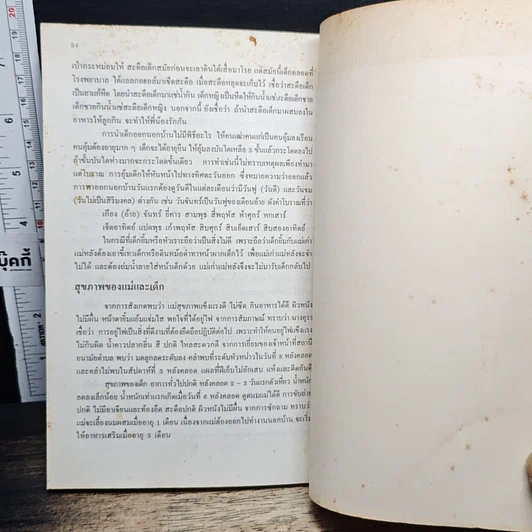 94
เป่ากระหม่อมให้ สะดือเด็กสมัยก่อนจะเอาดินใต้เสื่อมาโรย แต่สมัยนี้เด็กคลอดที่
โรงพยาบาล ได้แอลกอฮอล์มาเช็ดสะดือ เมื่อสะดือหลุดจะเก็บไว้ เชื่อว่าสะดือเด็ก
เป็นยาแก้หืด โดยนำสะดือเด็กมาแช่น้ำ เด็กหญิงเป็นหืดให้กินน้ำแช่สะดือเด็กชาย
เด็กชายกินน้ำแช่สะดือเด็กหญิง นอกจากนี้ ยังเชื่อว่า ถ้านำสะดือเด็กมาผสมลงใน
อาหารให้ลูกกิน จะทำให้พี่น้องรักกัน
การนำเด็กออกนอกบ้านไม่มีพิธีอะไร ให้คนเฒ่าคนแก่เป็นคนอุ้มลงเรือน
คนอุ้มต้องอายุมาก ๆ เด็กจะได้อายุยืน ให้อุ้มลงบันไดเหลือ 3 ขั้นแล้วกระโดดลงไป
ถ้าขั้นบันไดห่างมากจะกระโดดขั้นเดียว การทำเช่นนี้ไม่ทราบเหตุผลเพียงทำมา
แต่โบราณ การอุ้มเด็กให้หันหน้าไปทางทิศตะวันออก ซึ่งหมายความว่าออกแล้ว
การพาออกนอกบ้านวันแรกต้องดูวันดีในแต่ละเดือนว่ามีวันฟู (วันดี) และวันจม
(วันไม่เป็นสิริมงคล) ต่างกัน เช่น วันจันทร์เป็นวันฟูของเดือนอ้าย ดังคำโบราณที่ว่า
เกียง (อ้าย) จันทร์ ยี่คาร สามพุธ สี่พฤหัส ห้าศุกร์ หกเสาร์
เจ็ดอาทิตย์ แปดพุธ เก้าพฤหัส สิบศุกร์ สิบเอ็ดเสาร์ สิบสองอาทิตย์
ในกรณีที่เด็กยิ้มหรือหัวเราะถือว่าเป็นสิ่งไม่ดี เพราะถือว่าเด็กยิ้มกับแม่เก่า
แม่หลังต้องเอาขี้เทาเด็กหรือดินหม้อดำทาหน้าผากเด็กไว้ เพื่อแม่เก่าแม่หลังจะจำ
ไม่ได้ และต้องถ่มน้ำลายใส่หน้าเด็กด้วย แม่เก่าแม่หลังจึงจะไม่มารับเด็กกลับไป
สุขภาพของแม่และเด็ก
จากการสังเกตพบว่า แม่สุขภาพแข็งแรงดี ไม่ซีด กินอาหารได้ดี ผิวหนัง
ไม่มีผื่น หน้าตายิ้มแย้มแจ่มใส พอใจที่ได้อยู่ไฟ จากการสัมภาษณ์ ทราบว่า
เชื่อว่า การอยู่ไฟเป็นสิ่งที่ดีงามที่ต้องยึดถือปฏิบัติต่อไป เพราะทำให้คนอยู่ไฟแข็งแรง
ไม่กินผิด น้ำคาวปลากลิ่น สี ปกติ ไหลสะดวกดี จากการเยี่ยมของเจ้าหน้าที่สถานี
อนามัยตำบล พบว่า มดลูกลดระดับลง คลำพบที่ระดับหัวหน่าวในวันที่ 8 หลังคลอด
และคลำไม่พบในสัปดาห์ที่ 3 หลังคลอด แผลที่ฝีเย็บไม่อักเสบ แห้งและติดกันดี
สุขภาพของเด็ก อาการทั่วไปปกติ หลังคลอด 2 – 3 วันแรกตัวเหี่ยว น้ำหนัก
ลดลงเล็กน้อย น้ำหนักเท่าแรกเกิดเมื่อวันที่ 8 หลังคลอด ดูดนมแม่ได้ดี การขับถ่าย
ปกติ ไม่มีอาเจียนและท้องอืด สะดือปกติ ผิวหนังไม่มีผื่น จากการซักถาม ทราบว่า
แม่จะเลี้ยงนมผสมเมื่ออายุ 1 เดือน เนื่องจากแม่ต้องออกไปทำงานนอกบ้าน จะเริ่ม
ให้อาหารเสริมเมื่ออายุ 3 เดือน